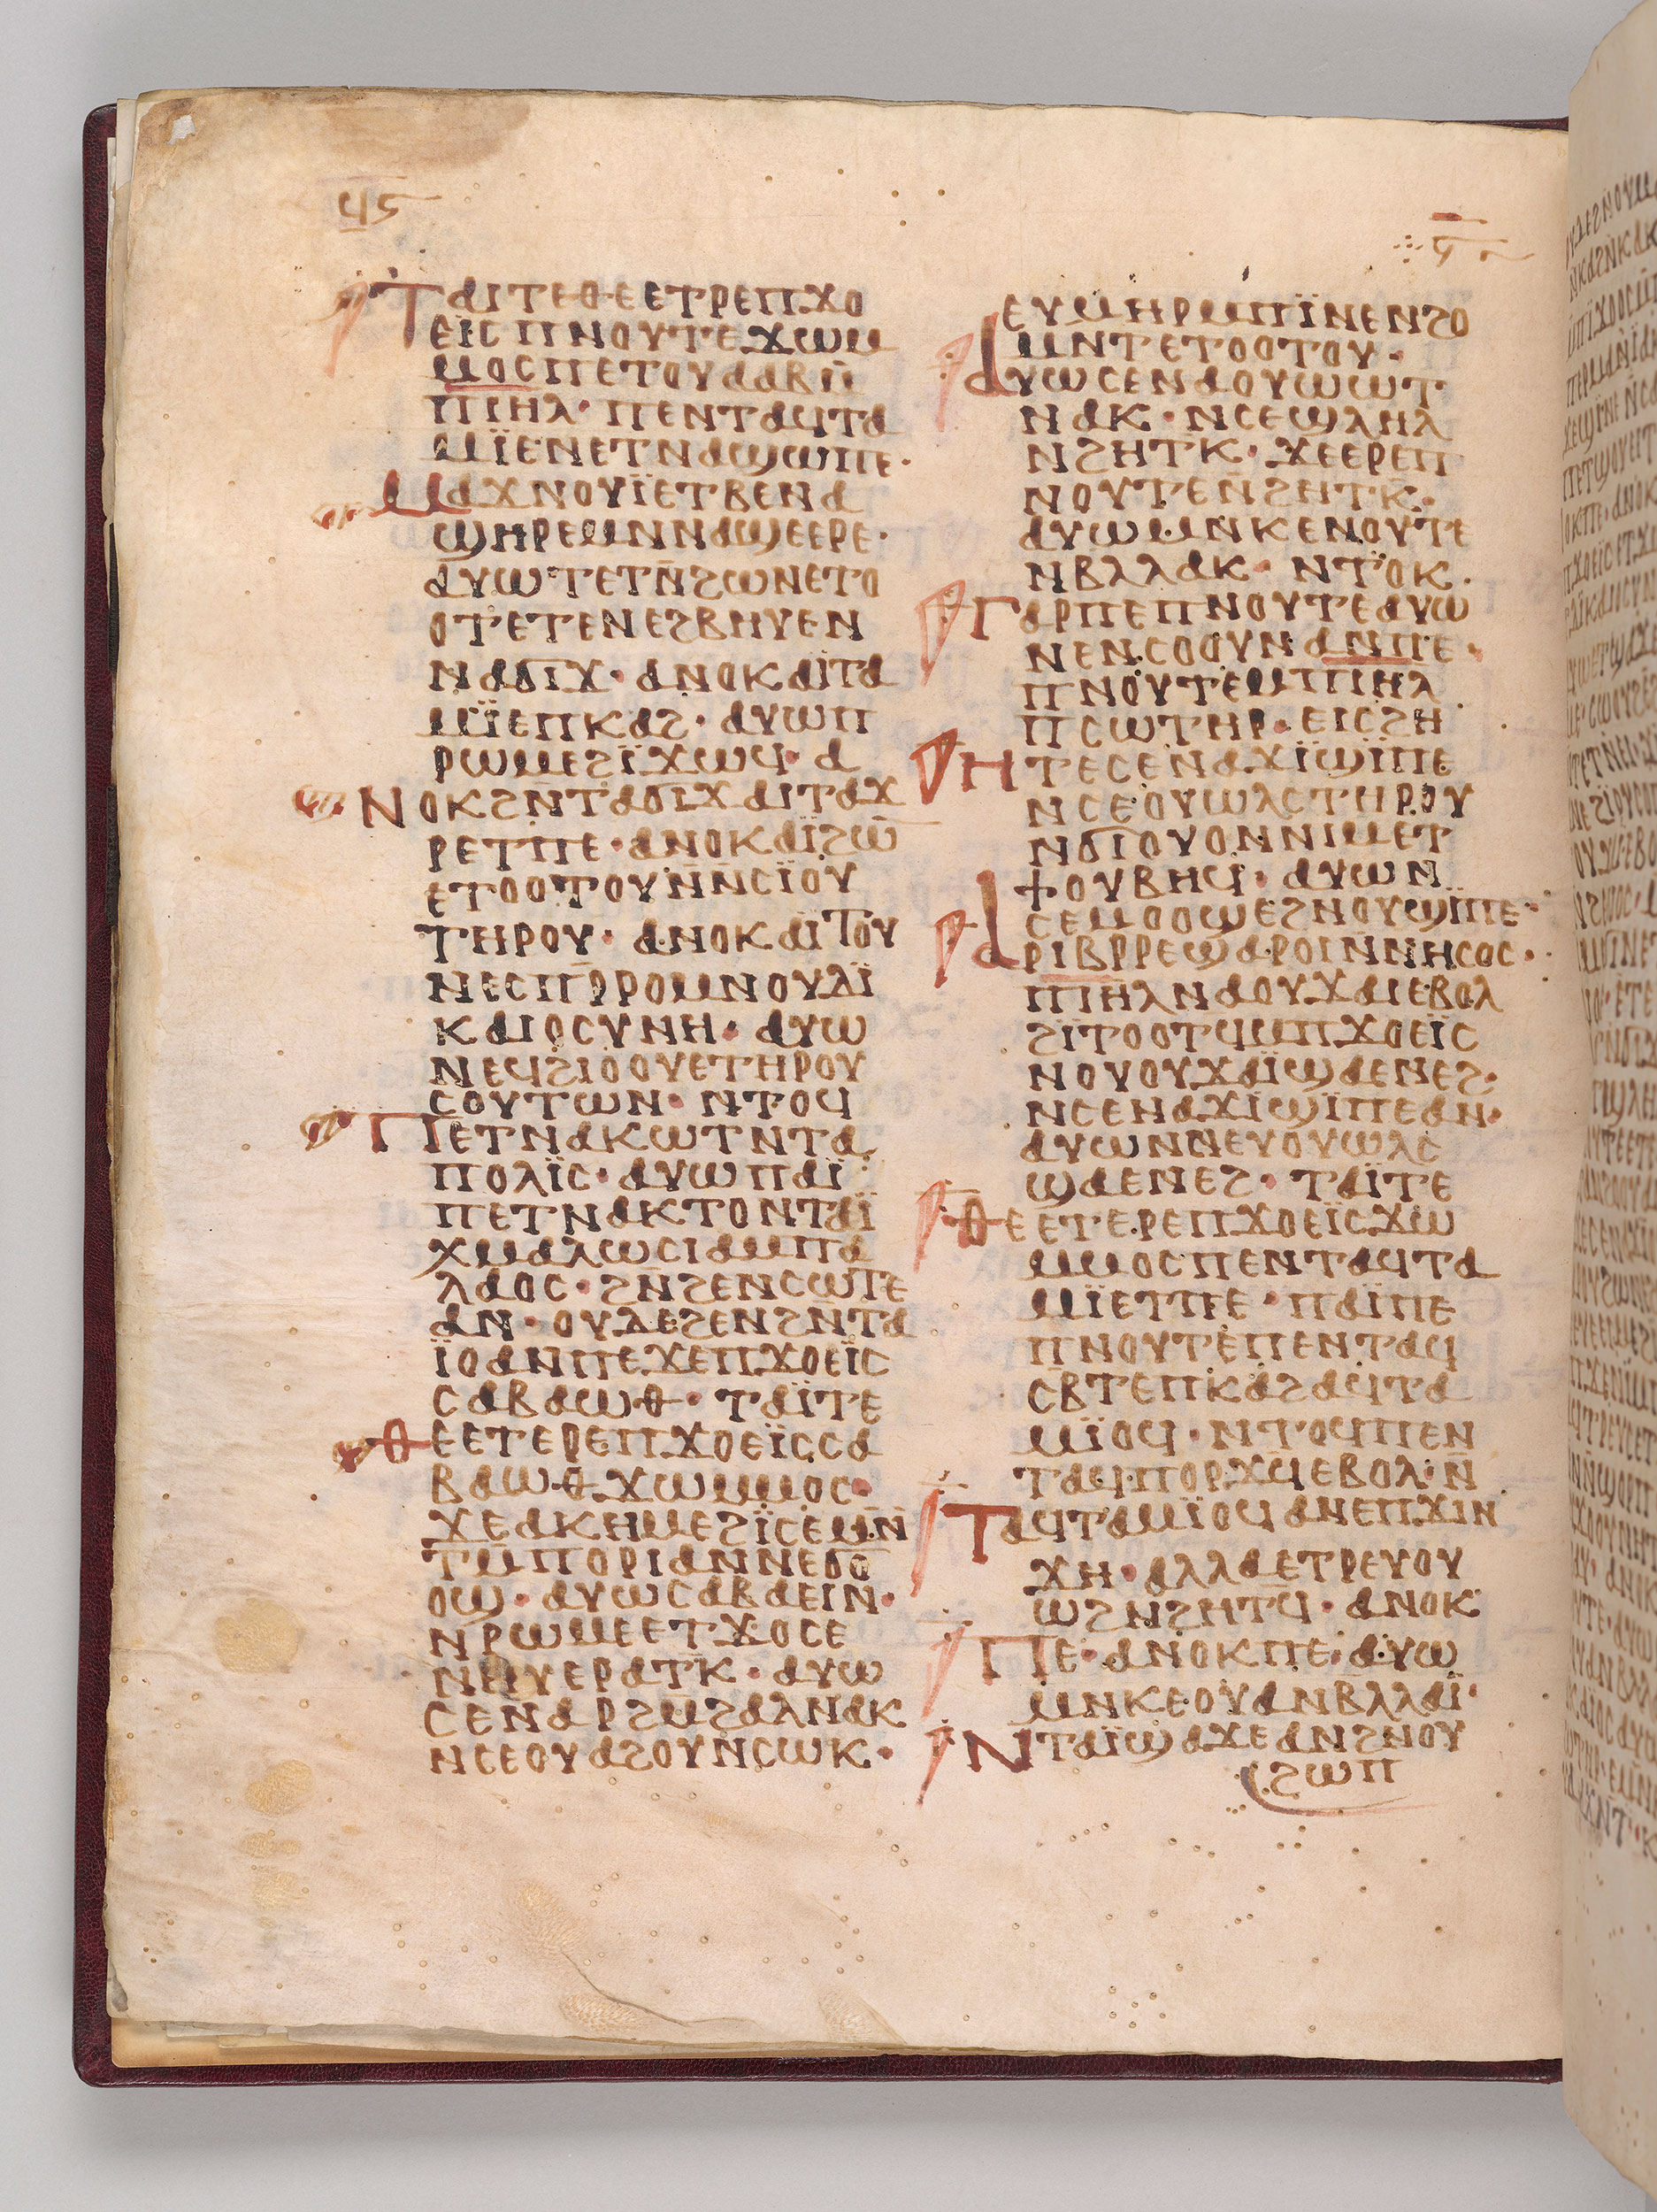 ϥⲋ
ⲧⲁⲓⲧⲉⲑⲉⲉⲧⲣⲉⲡϫⲟ
ⲉⲓ̈ⲥⲡⲛⲟⲩⲧⲉϫⲱⲙ
ⲙⲟⲥⲡⲉⲧⲟⲩⲁⲁⲃⲙ̄
ⲡⲓⲏⲗ· ⲡⲉⲛⲧⲁϥⲧⲁ
ⲙⲓ̈ⲉⲛⲉⲧⲛⲁϣⲱⲡⲉ·
ⲙⲁϫⲛⲟⲩⲓ̈ⲉⲧⲃⲉⲛⲁ
ϣⲏⲣⲉⲙⲛⲛⲁϣⲉⲉⲣⲉ·
ⲁⲩⲱⲧⲉⲧⲛ̄ϩⲱⲛⲉⲧⲟ
ⲟⲧⲉⲧⲉⲛⲉϩⲃⲏⲩⲉⲛ
ⲛⲁϭⲓϫ· ⲁⲛⲟⲕⲁⲓ̈ⲧⲁ
ⲙⲓ̈ⲉⲡⲕⲁϩ· ⲁⲩⲱⲡ
ⲣⲱⲙⲉϩⲓ̈ϫⲱϥ· ⲁ
ⲛⲟⲕϩⲛⲧⲁϭⲓϫⲁⲓⲧⲁϫ
ⲣⲉⲧⲡⲉ· ⲁⲛⲟⲕⲁⲓ̈ϩⲱ
ⲉⲧⲟⲟⲧⲟⲩⲛ̄ⲛⲥⲓ̈ⲟⲩ
ⲧⲏⲣⲟⲩ· ⲁⲛⲟⲕⲁⲓ̈ⲧⲟⲩ
ⲛⲉⲥⲡⲣ̄ⲣⲟⲙⲛⲟⲩⲇⲓ̈
ⲕⲁⲓⲟⲥⲩⲛⲏ· ⲁⲩⲱ
ⲛⲉϥϩⲓⲟⲟⲩⲉⲧⲏⲣⲟⲩ
ⲥⲟⲩⲧⲱⲛ· ⲛⲧⲟϥ
ⲡⲉⲧⲛⲁⲕⲱⲧⲛⲧⲁ
ⲡⲟⲗⲓ̈ⲥ· ⲁⲩⲱⲡⲁⲓ̈
ⲡⲉⲧⲛⲁⲕⲧⲟⲛⲧⲁⲓ̈
ⲭⲙⲁⲗⲱⲥⲓⲁⲙⲡⲁ
ⲗⲁⲟⲥ· ϩⲛ̄ϩⲉⲛⲥⲱⲧⲉ
ⲁⲛ· ⲟⲩⲇⲉϩⲉⲛϩⲛ̄ⲧⲁ
ⲓ̈ⲟⲁⲛⲡⲉϫⲉⲡϫⲟⲉⲓ̈ⲥ
ⲥⲁⲃⲁⲱⲑ· ⲧⲁⲓ̈ⲧⲉ
ⲑⲉⲉⲧⲉⲣⲉⲡϫⲟⲉⲓ̈ⲥⲥⲁ
ⲃⲁⲱⲑϫⲱⲙⲙⲟⲥ·
ϫⲉⲁⲕⲏⲙⲉϩⲓ̈ⲥⲉⲙⲛ̄
ⲧⲙ̄ⲡⲟⲣⲓⲁⲛⲛⲉϭⲟ
ⲟϣ· ⲁⲩⲱⲥⲁⲃⲁⲉⲓⲛ·
ⲛⲣⲱⲙⲉⲉⲧϫⲟⲥⲉ
ⲛⲏⲩⲉⲣⲁⲧⲕ̄· ⲁⲩⲱ
ⲥⲉⲛⲁⲣϩⲙ̄ϩⲁⲗⲛⲁⲕ
ⲛⲥⲉⲟⲩⲁϩⲟⲩⲛⲥⲱⲕ·
ⲉⲩⲙⲏⲣⲙⲡⲓ̈ⲛⲉⲛϩⲟ
ⲙⲛⲧⲉⲧⲟⲟⲧⲟⲩ·
ⲁⲩⲱⲥⲉⲛⲁⲟⲩⲱⲱⲧ
ⲛⲁⲕ· ⲛⲥⲉϣⲗⲏⲗ
ⲛϩⲏⲧⲕ· ϫⲉⲉⲣⲉⲡ
ⲛⲟⲩⲧⲉⲛϩⲏⲧⲕ̄·
ⲁⲩⲱⲙⲛⲕⲉⲛⲟⲩⲧⲉ
ⲛⲃⲗⲗⲁⲕ· ⲛⲧⲟⲕ·
ⲅⲁⲣⲡⲉⲡⲛⲟⲩⲧⲉⲁⲩⲱ
ⲛⲉⲛⲥⲟⲟⲩⲛⲁⲛⲡⲉ·
ⲡⲛⲟⲩⲧⲉⲙⲡⲓⲏⲗ
ⲡⲥⲱⲧⲏⲣ· ⲉⲓⲥϩⲏ
ⲏⲧⲉⲥⲉⲛⲁϫⲓ̈ϣⲓ̈ⲡⲉ
ⲛⲥⲉⲟⲩⲱⲗⲥⲧⲏⲣⲟⲩ
ⲛϭⲓⲟⲩⲟⲛⲛⲓⲙⲉⲧ
ϯⲟⲩⲃⲏϥ· ⲁⲩⲱⲛ
ⲥⲉⲙⲟⲟϣⲉϩⲛⲟⲩϣⲓ̈ⲡⲉ·
ⲁⲣⲓⲃⲣⲣⲉϣⲁⲣⲟⲓⲛⲛⲏⲥⲟⲥ·
ⲡⲓⲏⲗⲛⲁⲟⲩϫⲁⲓⲉⲃⲟⲗ
ϩⲓ̈ⲧⲟⲟⲧϥⲙⲡϫⲟⲉⲓ̈ⲥ
ⲛⲟⲩⲟⲩϫⲁⲓ̈ϣⲁⲉⲛⲉϩ·
ⲛⲥⲉⲛⲁϫⲓ̈ϣⲓ̈ⲡⲉⲁⲛ·
ⲁⲩⲱⲛⲛⲉⲩⲟⲩⲱⲗⲥ
ϣⲁⲉⲛⲉϩ· ⲧⲁⲓ̈ⲧⲉ
ⲑⲉⲉⲧⲉⲣⲉⲡϫⲟⲉⲓ̈ⲥϫⲱ
ⲙⲙⲟⲥⲡⲉⲛⲧⲁϥⲧⲁ
ⲙⲓ̈ⲉⲧⲡⲉ· ⲡⲁⲓ̈ⲡⲉ
ⲡⲛⲟⲩⲧⲉⲡⲉⲛⲧⲁϥ
ⲥⲃⲧⲉⲡⲕⲁϩⲁϥⲧⲁ
ⲙⲓ̈ⲟϥ· ⲛⲧⲟϥⲡⲉⲛ
ⲧⲁϥⲡⲟⲣϫϥⲉⲃⲟⲗ·ⲛ
ⲧⲁϥⲧⲁⲙⲓ̈ⲟϥⲁⲛⲉⲡϫⲓⲛ
ϫⲏ· ⲁⲗⲗⲁⲉⲧⲣⲉⲩⲟⲩ
ⲱϩⲛϩⲏⲧϥ· ⲁⲛⲟⲕ
ⲡⲉ· ⲁⲛⲟⲕⲡⲉ· ⲁⲩⲱ
ⲙⲛⲕⲉⲟⲩⲁⲛⲃⲗⲗⲁⲓ̈·
ⲛⲧⲁⲓ̈ϣⲁϫⲉⲁⲛϩⲛⲟⲩ
ϩⲱⲡ